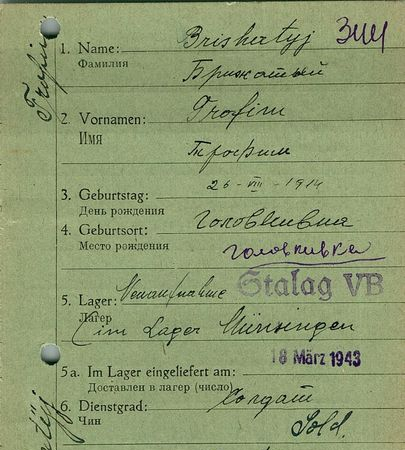 1. Name: Brishatyj
Фамилия
Брижатый
2. Vornamen: Trofim
Имя
Трофим
3. Geburtstag: 26-VIII-1914
День рождения
4. Geburtsort: Головкивка
Место рождения
Головкивка
Stalag VB
5. Lager: Neuaufnahme
Лагер
(im Lager Münsingen
18 März 1943
5a. Im Lager eingeliefert am:
Доставлен в лагер (число)
6. Dienstgrad: Солдат
Чин
Sold.
Trofim